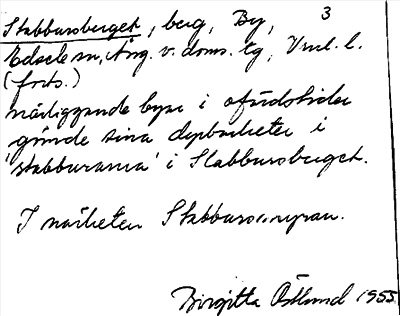 3
Stabbursberget, berg, By,
Edsele sn, Ång. v. doms. lg, Vnl. l.
(forts.)
närliggande byar i ofredstider
gömde sina dyrbarheter i
'stabburarna' i Stabbursberget.
I närheten Stabbursmyran.
Birgitta Östlund 1955